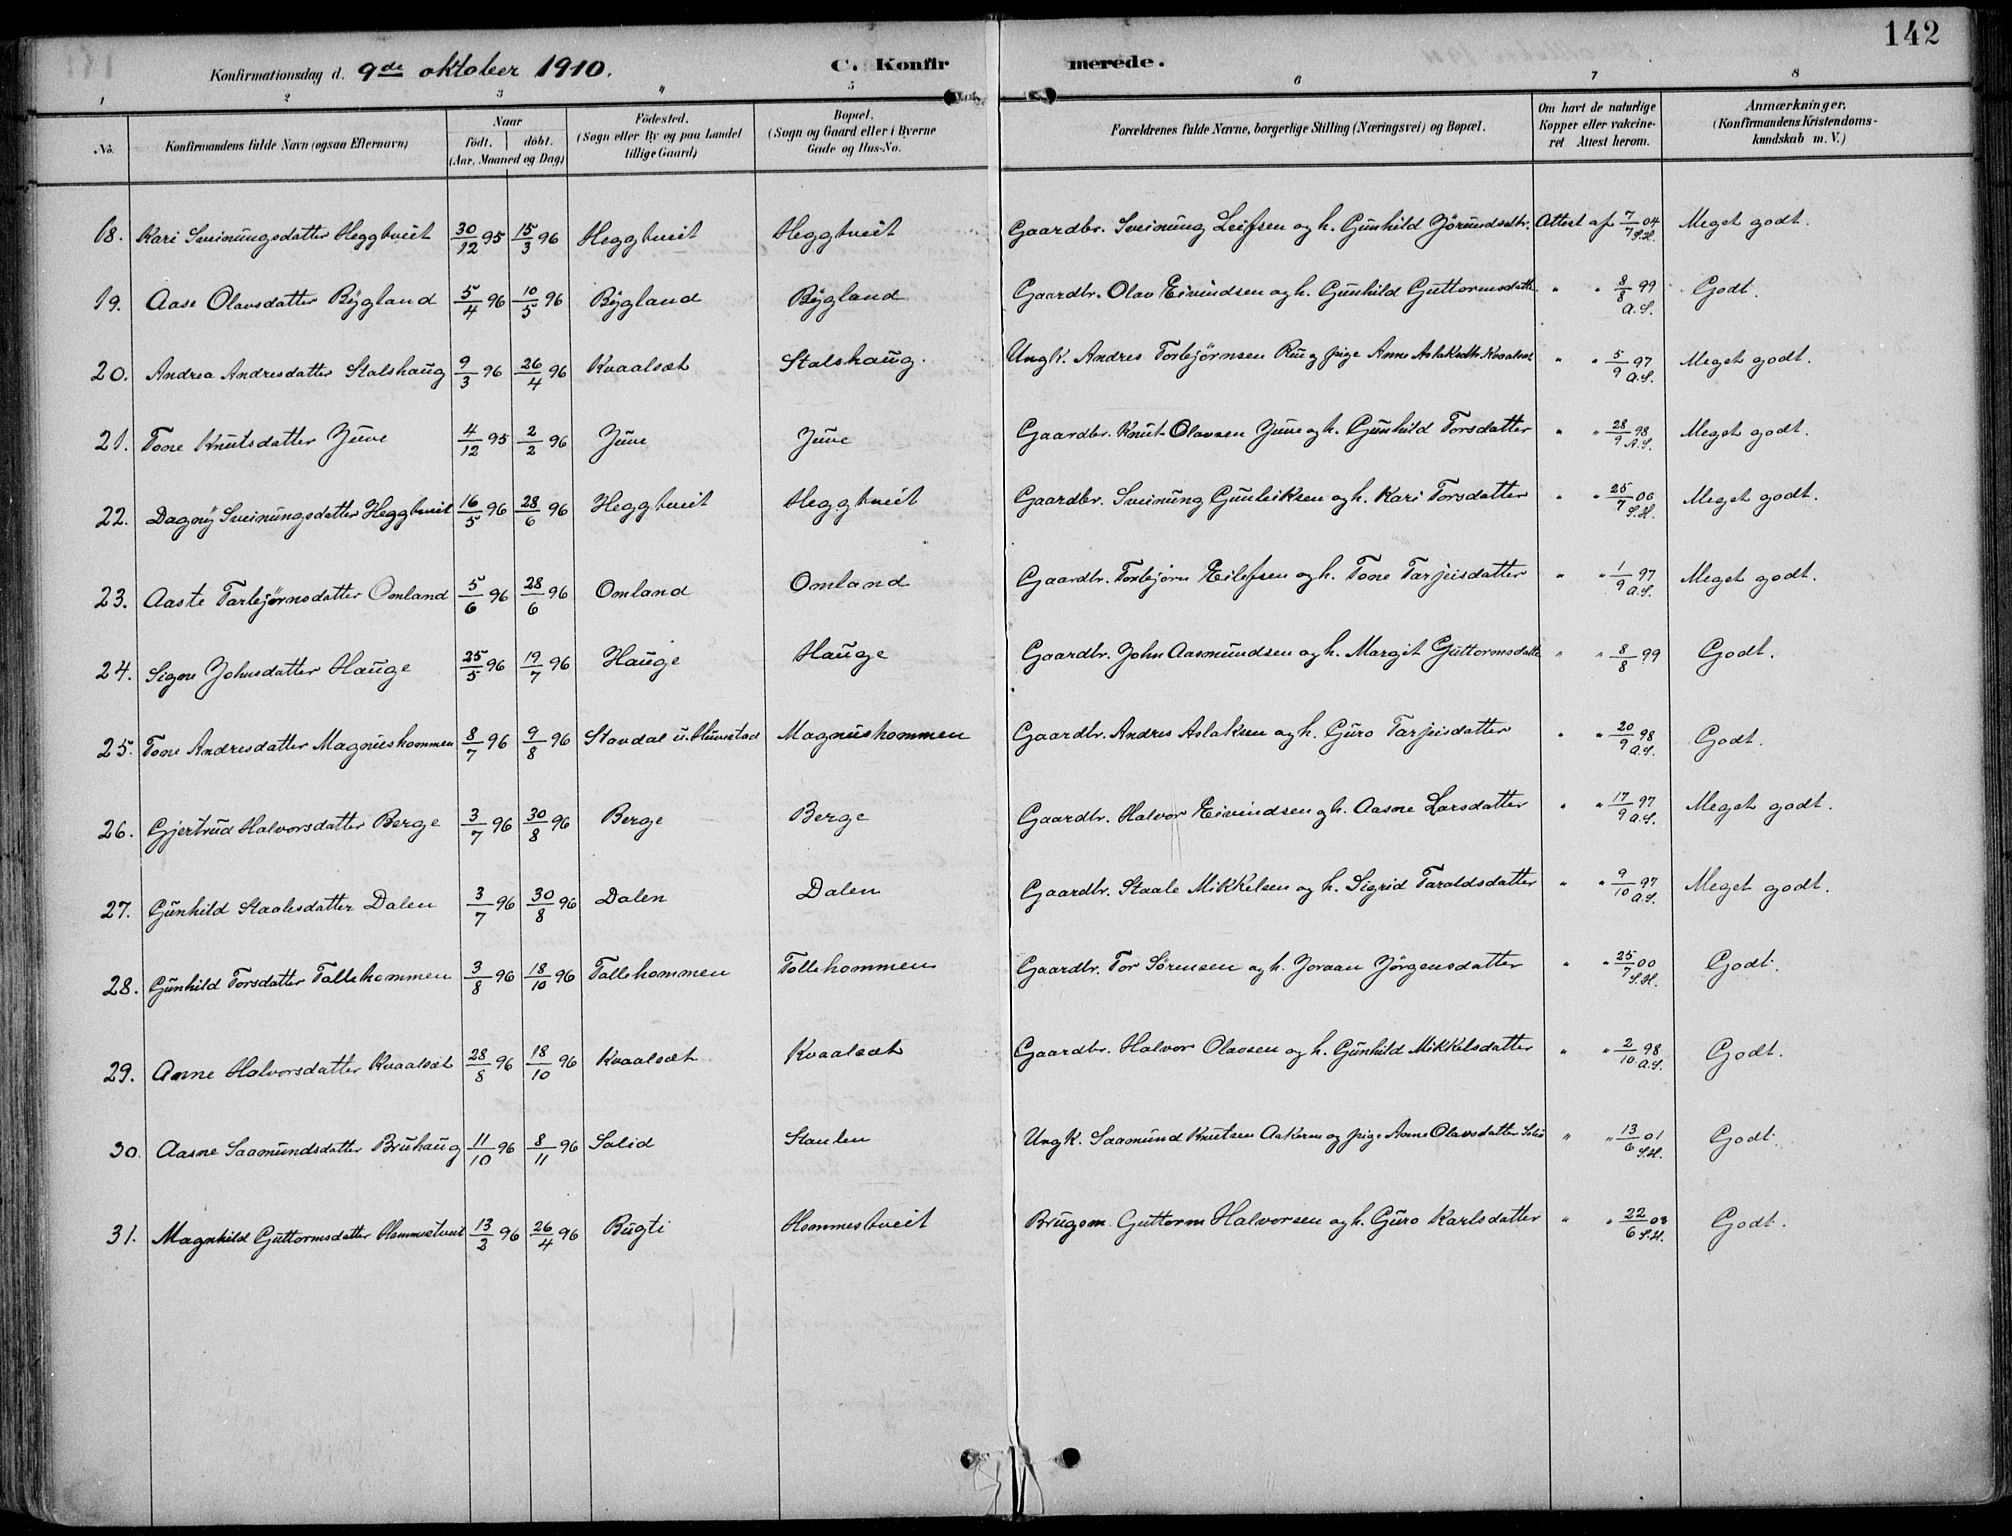 142
Konfirmationsdag d. 9de oktober 1910. C. Konfirmerede.
1 2 3 4 5 6 7 8
No. Konfirmandens fulde Navn (ogsaa Efternavn) Naar födt. döbt. (Aar, Maaned og Dag) Födested. (Sogn eller By og paa Landet tillige Gaard) Bopæl. (Sogn og Gaard eller i Byerne Gade og Hus-No. Forældrenes fulde Navne, borgerlige Stilling (Næringsvei) og Bopæl. Om havt de naturlige Kopper eller vakcineret Attest herom. Anmærkninger. (Konfirmandens Kristendomskundskab m. V.)
18. Kari Sveinungsdatter Heggtveit 30/12 95 15/3 96 Heggtveit Heggtveit Gaardbr. Sveinung Leifsen og h. Gunhild Jörundsdtr. Attest af 7/7 04 S.H. Meget godt.
19. Aase Olavsdatter Bygland 5/4 96 10/5 96 Bygland Bygland Gaardbr. Olav Eivindsen og h. Gunhild Guttormsdatter " " 8/8 99 A.S. Godt.
20. Andrea Andresdatter Stalshaug 9/3 96 26/4 96 Kvaalsæt Stalshaug. Ungk. Andres Torbjørnsen Rue og pige Anne Aslaksdtr. Kvaalsæt " " 5/9 97 A.S. Meget godt.
21. Tone Knutsdatter Juve 4/12 95 2/2 96 Juve Juve Gaardbr. Knut Olavsen Juve og h. Gunhild Torsdatter " " 28/9 98 A.S. Meget godt.
22. Dagny Sveinungsdatter Heggtveit 16/5 96 28/6 96 Heggtveit Heggtveit Gaardbr. Sveinung Gunleiksen og h. Kari Torsdatter " " 25/7 00 S.H. Meget godt.
23. Aaste Torbjørnsdatter Omland 5/6 96 28/6 96 Omland Omland Gaardbr. Torbjørn Eilefsen og h. Tone Tarjeisdatter " " 1/9 97 A.S. Meget godt.
24. Signe Johnsdatter Hauge 25/5 96 19/7 96 Hauge Hauge Gaardbr. John Aasmundsen og h. Margit Guttormsdatter " " 8/8 99 Godt.
25. Tone Andresdatter Magnushommen 8/7 96 9/8 96 Stavdal u. Magnushommen Gaardbr. Andres Aslaksen og h. Guro Tarjeisdatter " " 20/9 98 A.S. Godt.
26. Gjertrud Halvorsdatter Berge 3/7 96 30/8 96 Berge Berge Gaardbr. Halvor Eivindsen og h. Aasne Larsdatter " " 17/9 97 A.S. Meget godt.
27. Gunhild Staalesdatter Dalen 3/7 96 30/8 96 Dalen Dalen Gaardbr. Staale Mikkelsen og h. Sigrid Taraldsdatter " " 9/10 97 A.S. Meget godt.
28. Gunhild Torsdatter Tollehommen 3/8 96 18/10 96 Tollehommen Tollehommen Gaardbr. Tor Sørensen og h. Joraan Jørgensdatter " " 25/7 00 S.H. Godt.
29. Anne Halvorsdatter Kvaalsæt 28/8 96 18/10 96 Kvaalsæt Kvaalsæt Gaardbr. Halvor Olavsen og h. Gunhild Mikkelsdatter " " 2/10 98 A.S. Godt.
30. Aasne Saamundsdatter Bruhaug 11/10 96 8/11 96 Solid Ungk. Saamund Knutsen og pige Anne Olavsdatter Solid " " 13/6 01 S.H. Godt.
31. Magnhild Guttormsdatter Hommestveit 13/2 96 26/4 96 Bugti Hommestveit Brugsm. Guttorm Halvorsen og h. Guro Karlsdatter " " 22/6 03 S.H. Godt.